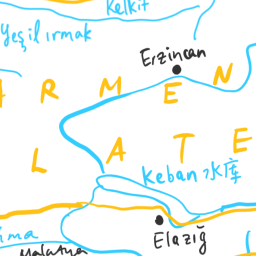 Kelkit
Yeşil ırmak
Erzincan
RMEN
LATE
Keban水库
Elazığ
Malatya